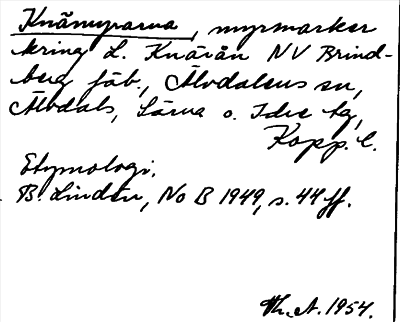 Knämyrarna, myrmarker
kring L. Knäån NV Brind-
berg fäb., Älvdalens sn,
Älvdals, Särna o. Idre tg,
Kopp. l.
Etymologi.
B. Lindén, No B 1949, s. 44 ff.
Th. A. 1954.